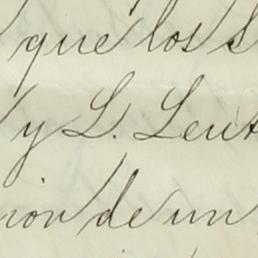 que los
y L. Leut
ion de un